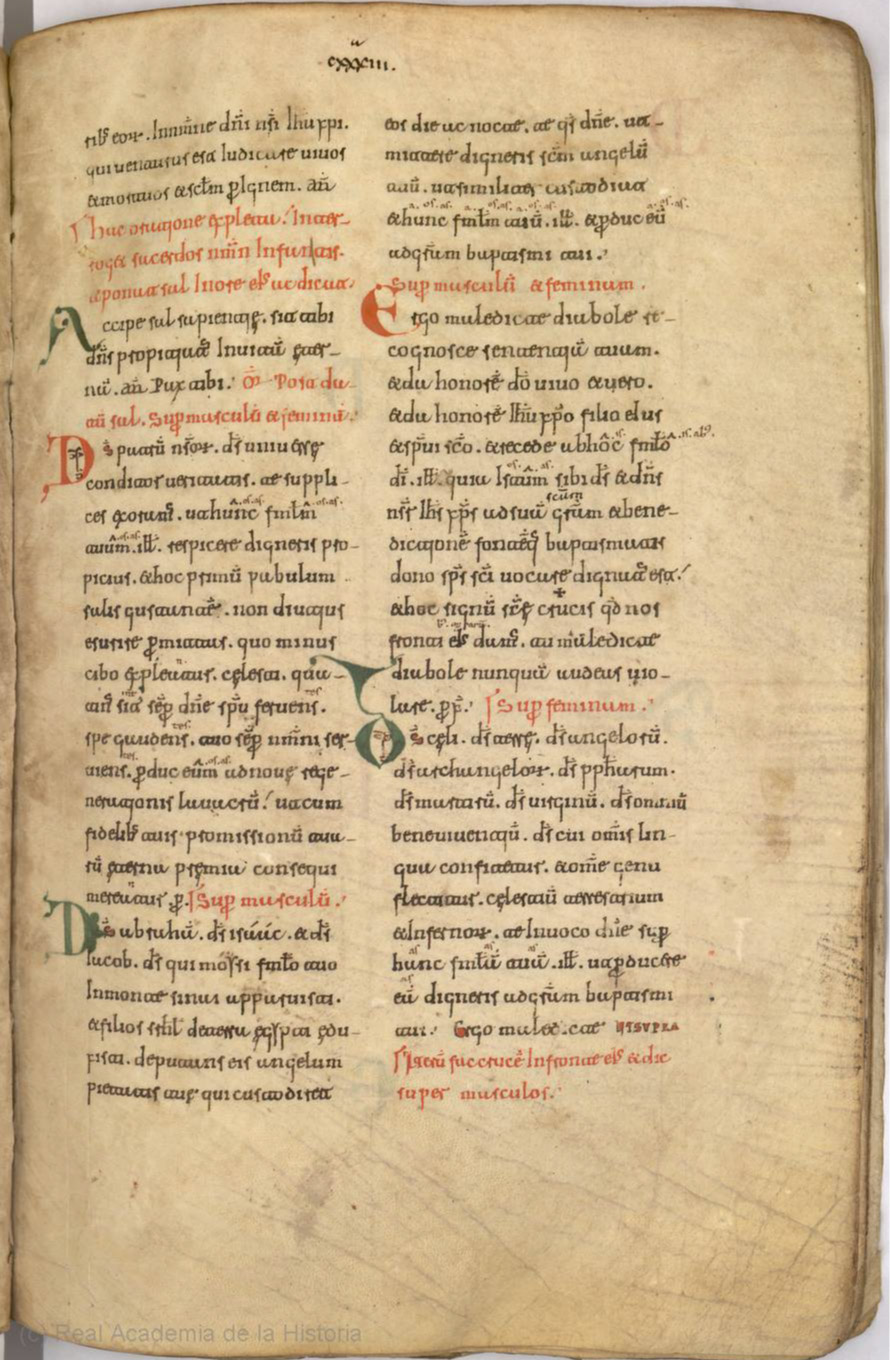 cxxxiii.
sibs eor. Innm̄ne dn̄i nr̄i Ihu xpi.
qui uenturus est Iudicare uiuos
et mortuos et sclm p̄ Ignem. am̄
Hac oratione expleta. Inter-
roget sacerdos nm̄n Infantis.
et ponat sal In ore eis et dicat
Accipe sal sapientie. sit tibi
dn̄s propitiatus In uitam eter-
nū. am̄ Pax tibi. Or̄ Post da-
tū sal. Sup̄ masculū et feminā.
Ds patrū nrōr. ds̄ uniuerse
conditor ueritatis. te suppli-
ces exoram̄. ut hunc fmlm
tuūm .ill. respicere digneris pro-
picius. et hoc primū pabulum
salis gustante. non diutius
esurire p̄mittas. quo minus
cibo expleatur. celesti. qua-
tn̄s sit sep̄ dn̄e spū feruens.
spe gaudens. tuo sep̄ nmni ser-
uiens. p̄duc eūm ad noue rege-
nerationis lauacrū. ut cum
fidelibs tuis promissionū tua-
rū eterna premia consequi
mereatur p̄. Sup̄ masculū.
Ds abrahā. ds̄ isaac. et ds̄
Iacob. ds̄ qui moysi fmlo tuo
In monte sinai apparuisti.
et filios srhl de terra egypti edu-
xisti. deputans eis angelum
pietatis tue qui custodiret
eos die ac nocte. te qs̄ dn̄e. ut
mittere digneris scm̄ angelū
tuū. ut similiter custodiat
et hunc fmlm tuū. ill. et p̄ducat eū
ad grām baptismi tui.
Sup̄ masculū et feminam.
Ergo maledicte diabole re-
cognosce sententiā tuam.
et da honorē dō uiuo et uero.
et da honorē Ihu xpo filio eius
et spui scō. et recede ab hōc fmlō
dī. ill. quia Istūm sibi ds̄ et dn̄s
nr̄ Ihs xps ad suā scām grām et bene-
dictionē fontēq baptismatis
dono sps sci uocare dignatus est.
et hoc signū scē crucis qd nos
fronti eis dam̄. tu maledicte
diabole nunquā audeas uio-
lare. p̄. Sup̄ feminam.
Ds celi. ds̄ terre. ds̄ angelorū.
ds̄ archangelor. ds̄ pphetarum.
ds̄ martirū. ds̄ uirginū. ds̄ omniū
bene uiuentiū. ds̄ cui omīs lin-
gua confitetur. et omne genu
flectatur. celestiū terrestrium
et Infernor. te Inuoco dn̄e sup̄
hūnc fmlūm tuū. ill. ut p̄ducere
eū digneris ad grām baptismi
tui. Ergo maled.cte UT SUPRA
Iterū fac crucē In fronte eis et dic
super masculos.